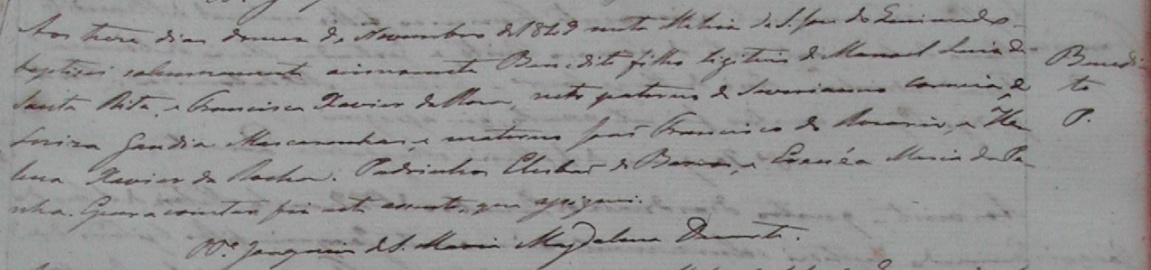 Aos treze dias do mez de Novembro de 1849 nesta Matriz de S. Jose do
baptizei solemnemente Benedito filho legitimo de Manoel Luis de
Santa Rita, e Francisca Xavier da Rosa, neto paterno de Severianno Correia, e
Luiza Gaudia Mascarenhas, e materno de Francisco do Rosario, e He
lena Xavier da Rocha. Padrinhos Elesbão de Barros, e Maria da Pa
nha. E para constar fiz este assento, que assignei.
Vi.º Joaquim de S. Maria Magdalena Duarte.
Benedi
to
P.